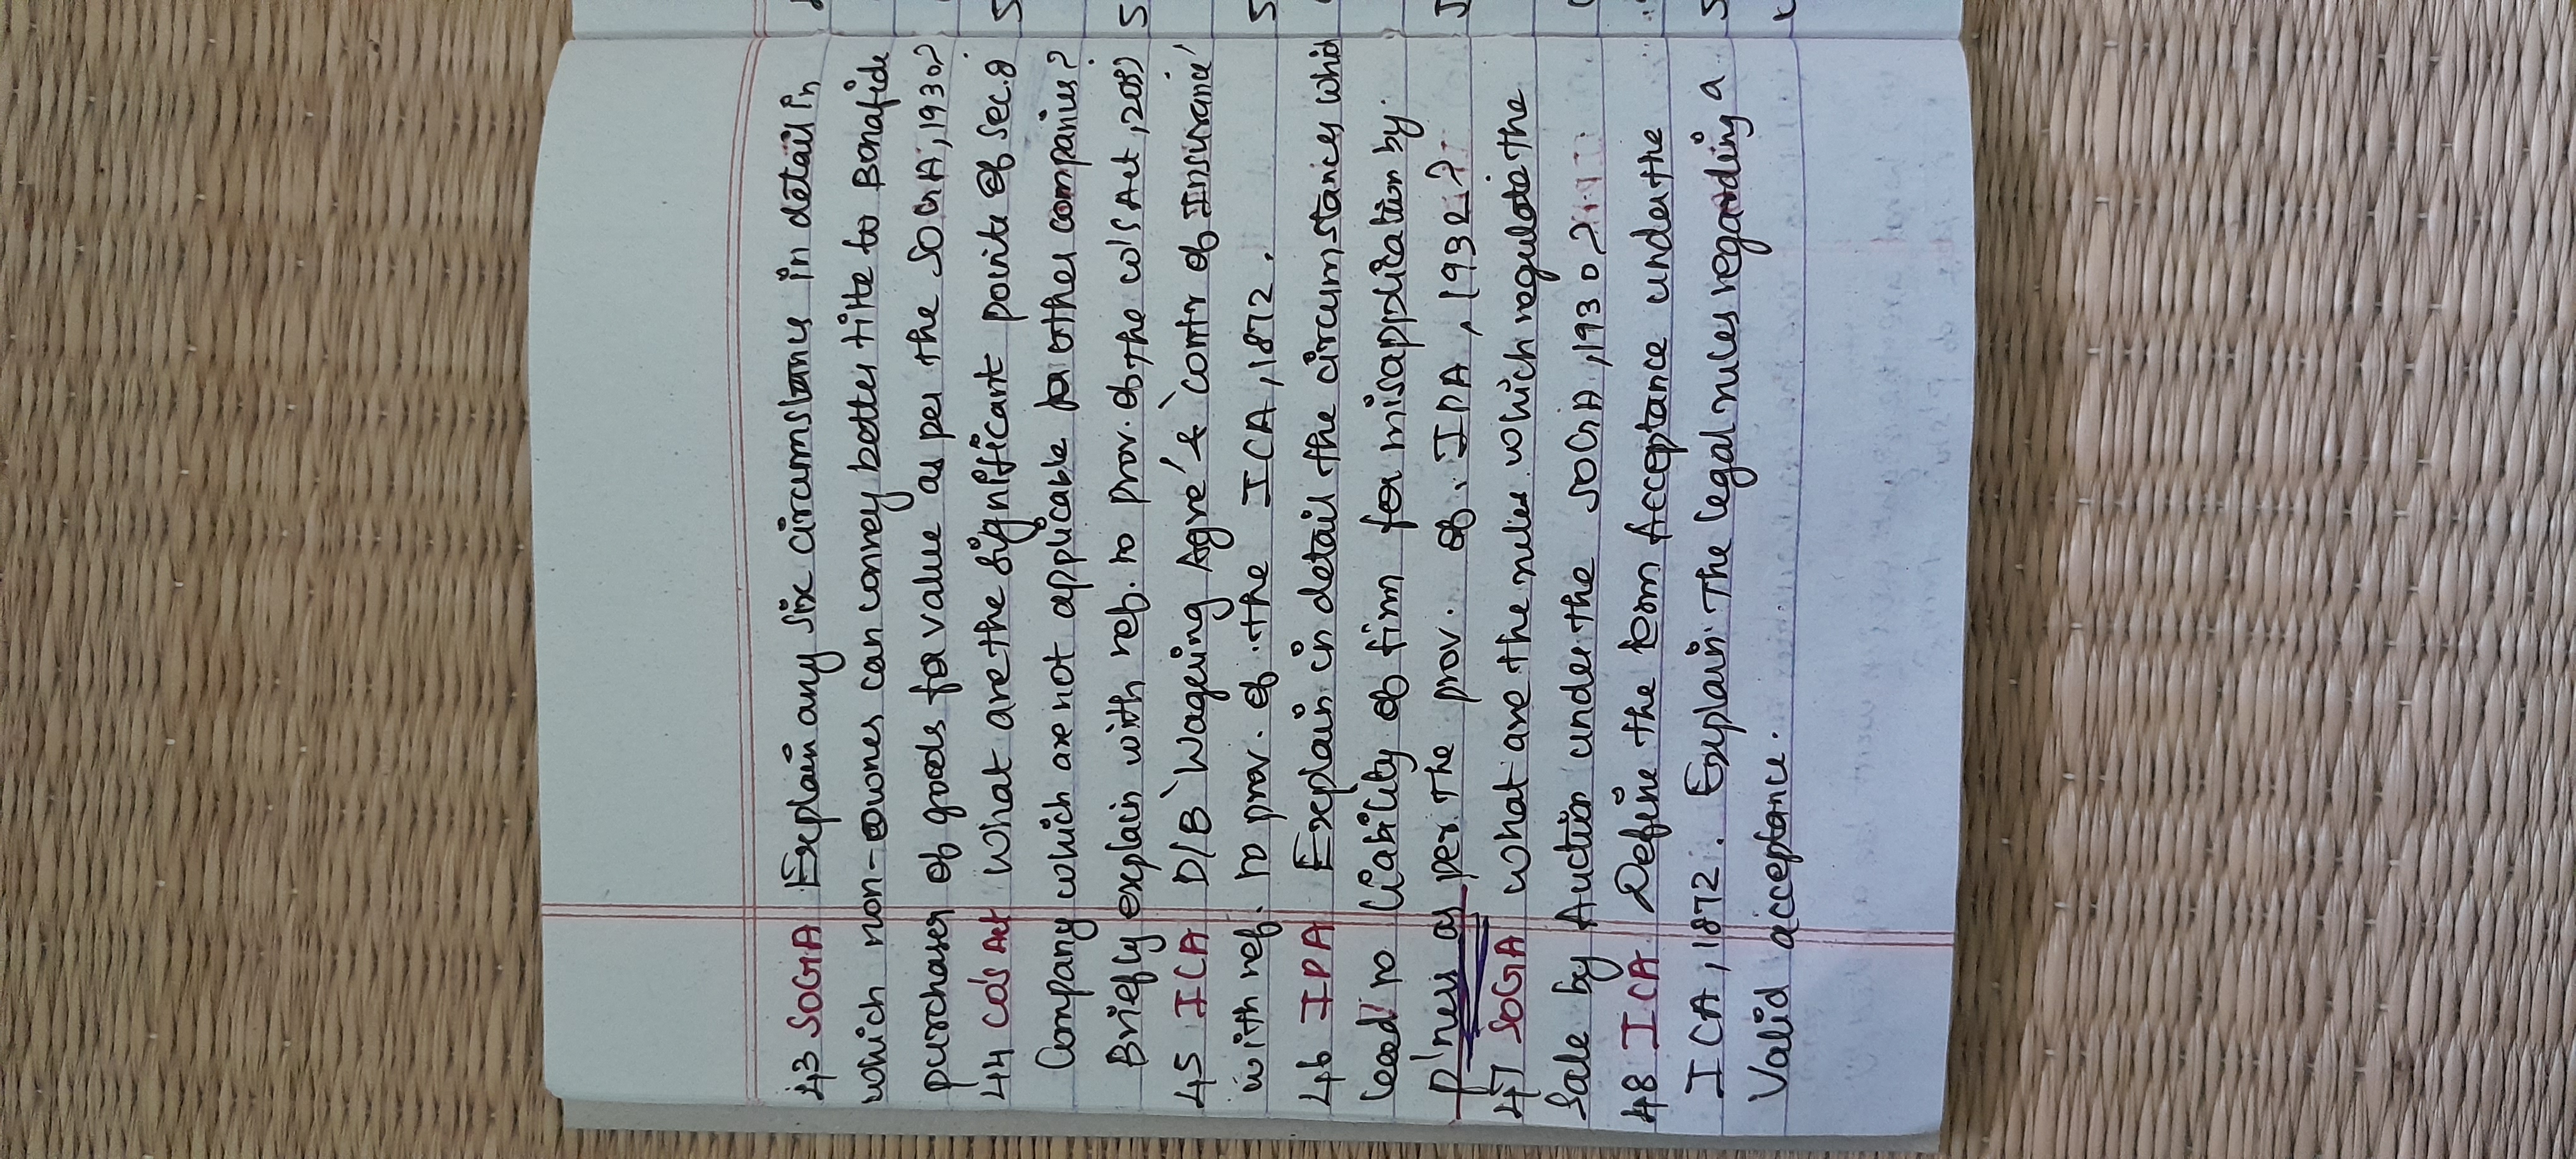 43 SOGA Explain any six circumstances in detail in
which non-owner can convey better title to Bonafide
purchaser of goods for value as per the SOGA, 1930?
44 Co's Act What are the significant points of Sec. 8
Company which are not applicable for other companies?
Briefly explain with ref. to prov. of the Co's Act, 2013
45 ICA D/B 'Wagering Agre' & 'Contr of Insurance'
with ref. to prov. of the ICA, 1872.
46 IPA Explain in detail the circumstances which
lead to liability of firm for misapplication by
P'ners as per the prov. of IPA, 1932?
47 SOGA What are the rules which regulate the
Sale by Auction under the SOGA, 1930?
48 ICA Define the term Acceptance under the
ICA, 1872. Explain the legal rules regarding a
Valid acceptance.